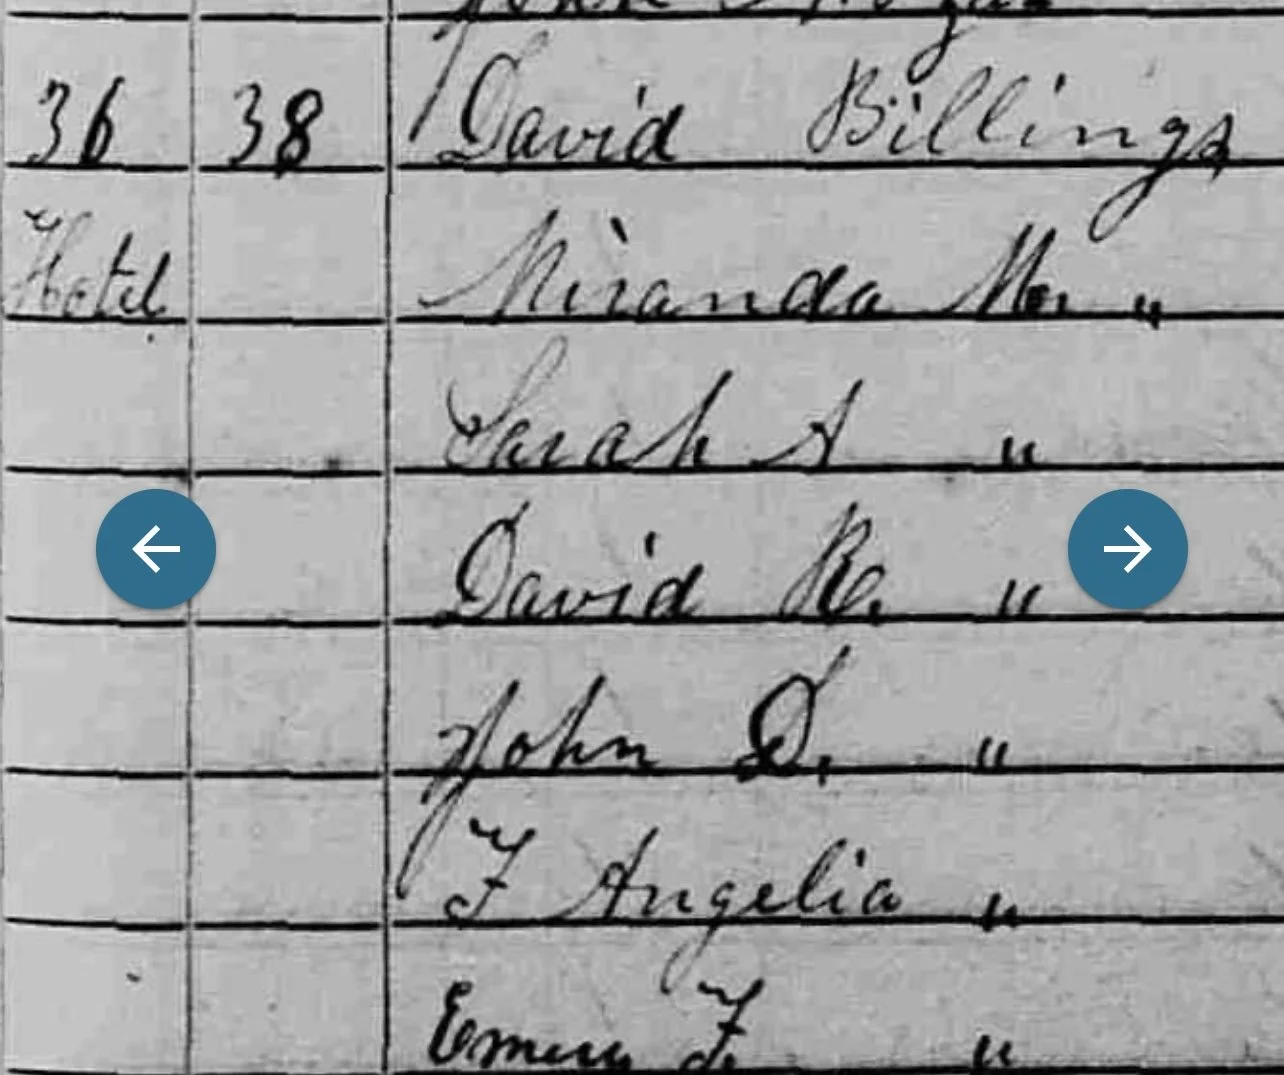 36 38 David Billings
Hotel Miranda M. "
Sarah A "
David R. "
John D. "
F Angelia "
Emery F. "